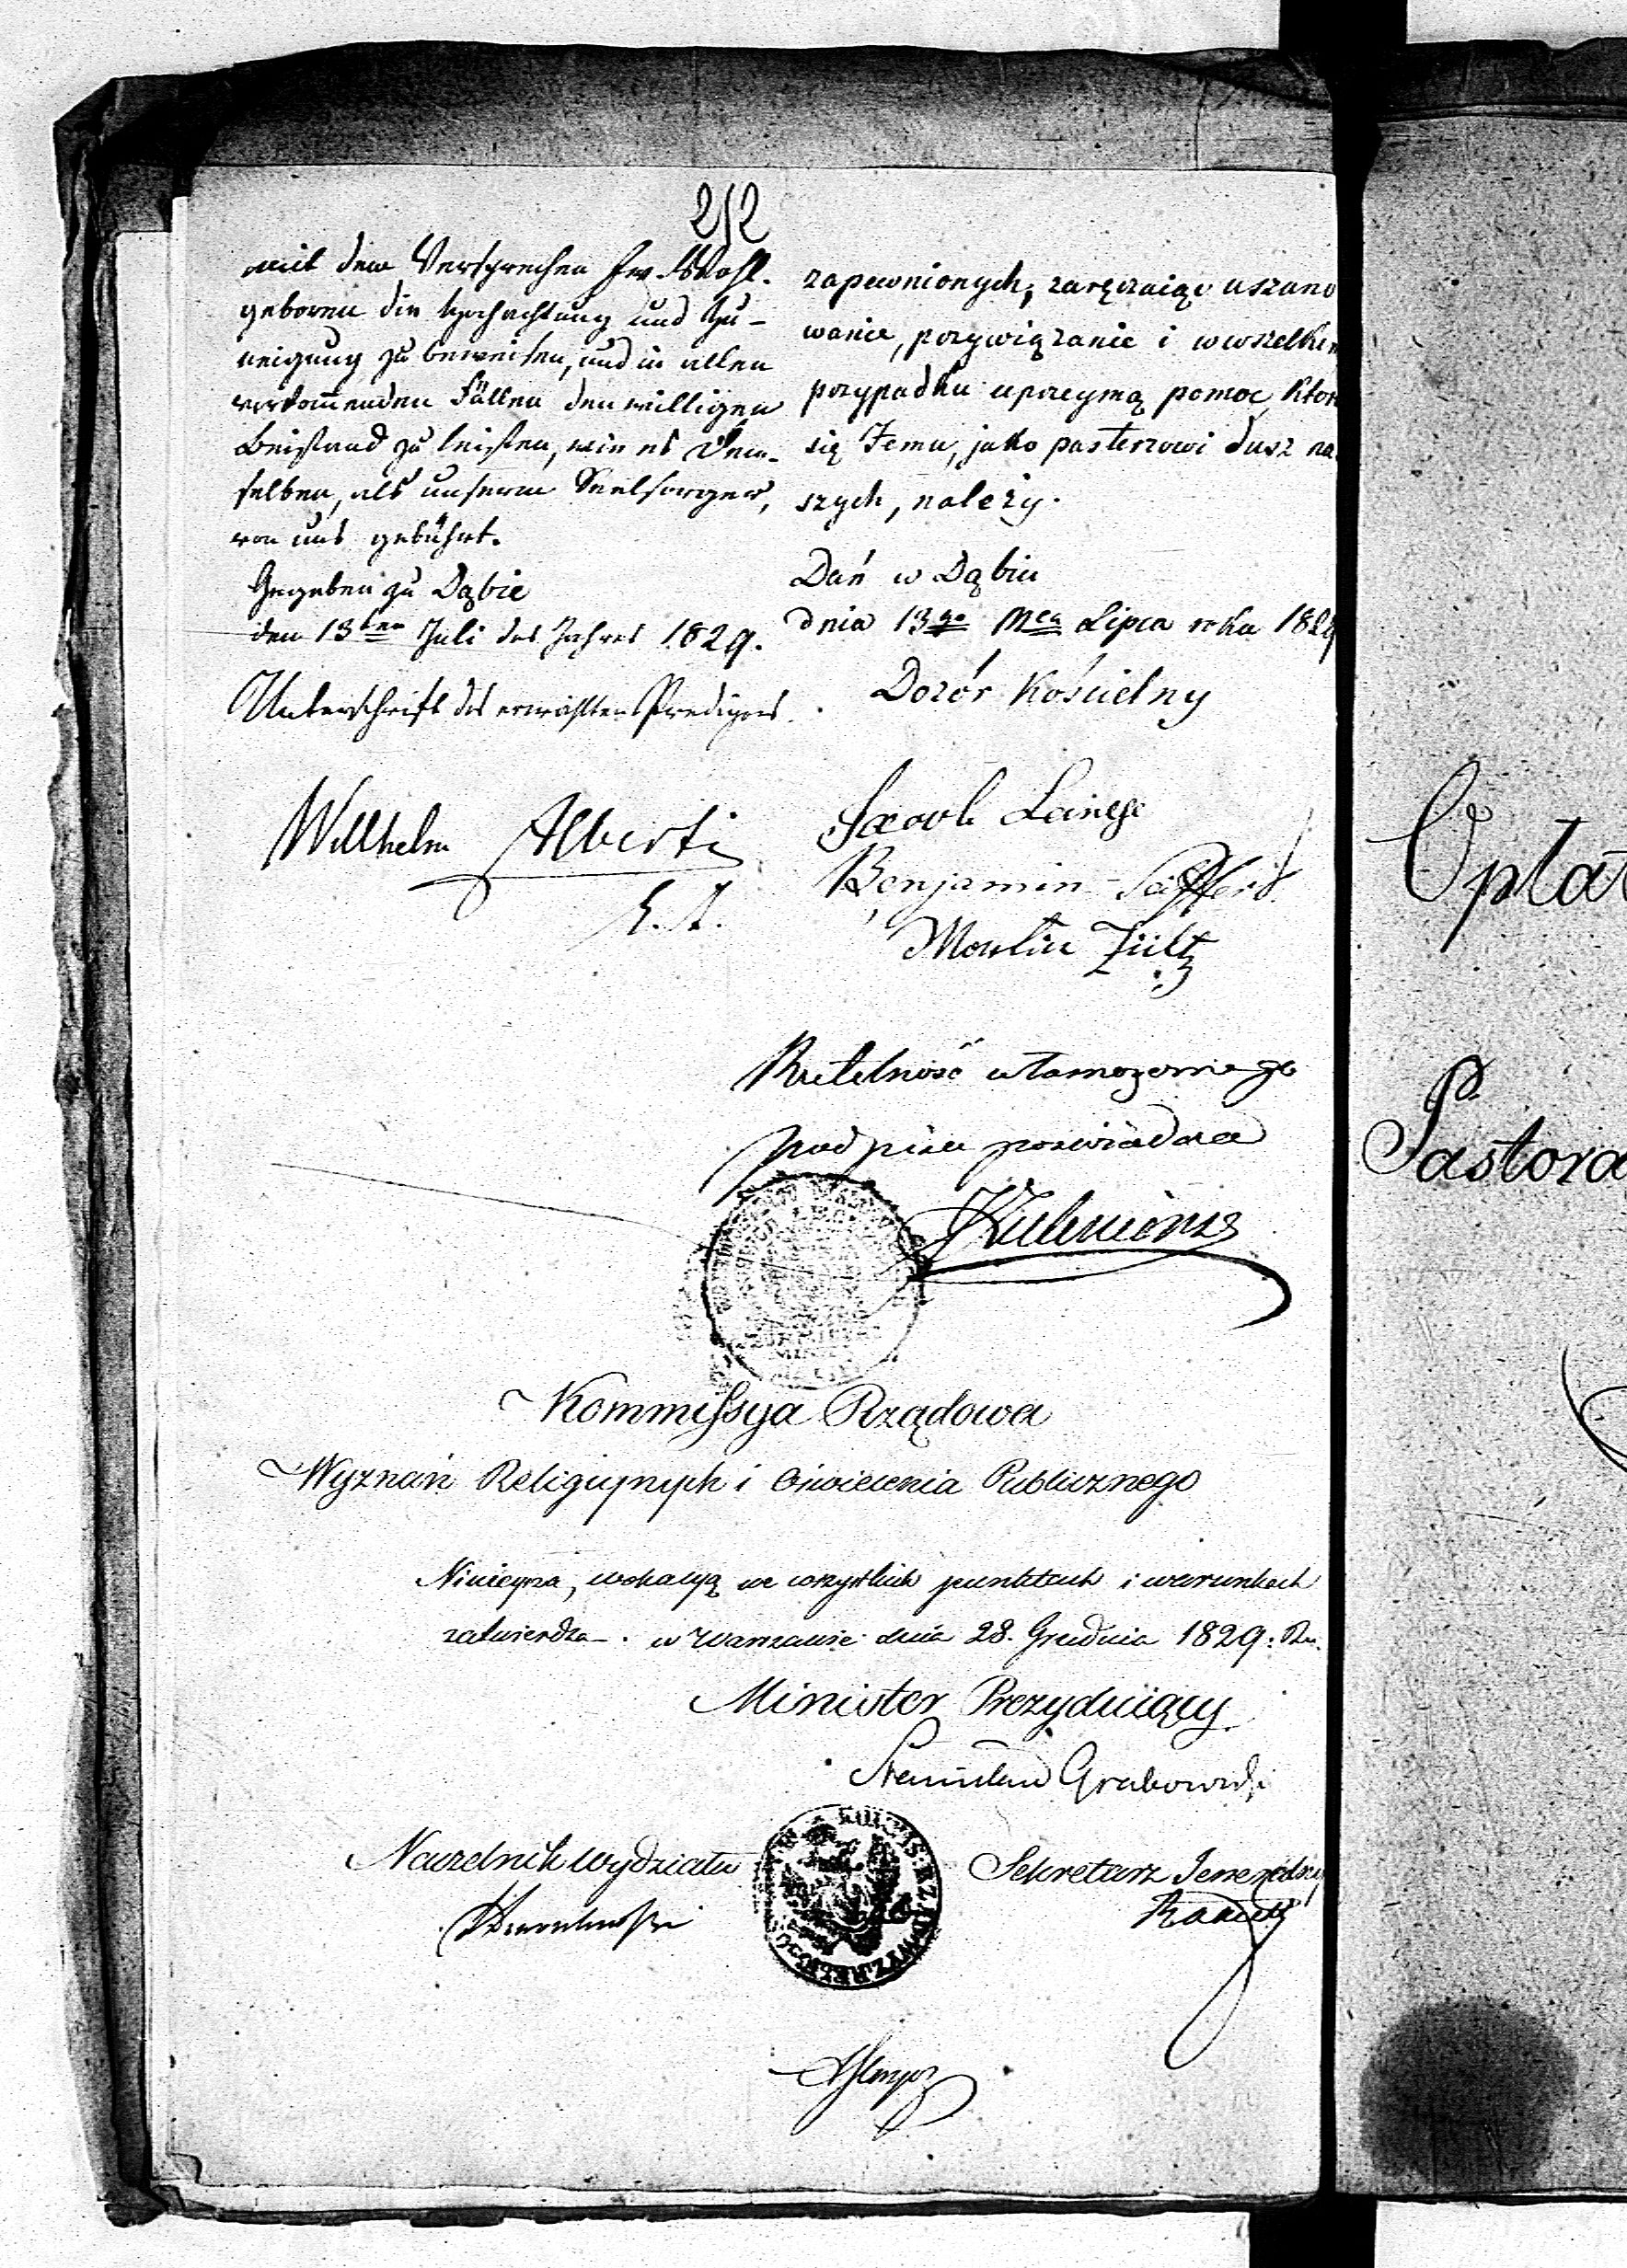 252
mit dem Versprechen Ew. Wohl-
geboren die Hochachtung und Zu-
neigung zu beweisen, und in allen
vorkommenden Fällen den willigen
Beistand zu leisten, wie es dem-
selben, als unserm Seelsorger,
von uns gebührt.
Gegeben zu Dąbie
den 13ten Juli des Jahres 1829.
Unterschrift des erwählten Predigers.
Wilhelm Alberti
zapewnionych; zaręczaiąc uszano
wanie, przywiązanie i w wszelkim
przypadku uprzeymą pomoc, któr
się Jemu, jako pasterzowi dusz na
szych, należy.
Dań w Dąbiu
dnia 13go Mca Lipca roku 1829
Dozór Kościelny
Jacob
Benjamin Seiffert
Martin Zültz
Rzetelność własnoręcznego
podpisu poświadcza
Kommissya Rządowa
Wyznań Religijnych i Oświecenia Publicznego
Ninieysza, wokacyą we wszystkich punktach i warunkach
zatwierdza. w Warszawie dnia 28. Grudnia 1829. Ru.
Minister Prezyduiący
Stanisław Grabowski
Naczelnik Wydziału
Sekretarz Jeneralny
KOMMIS: RZĄD: WYZ: RELIG:
Opłat
Pastora